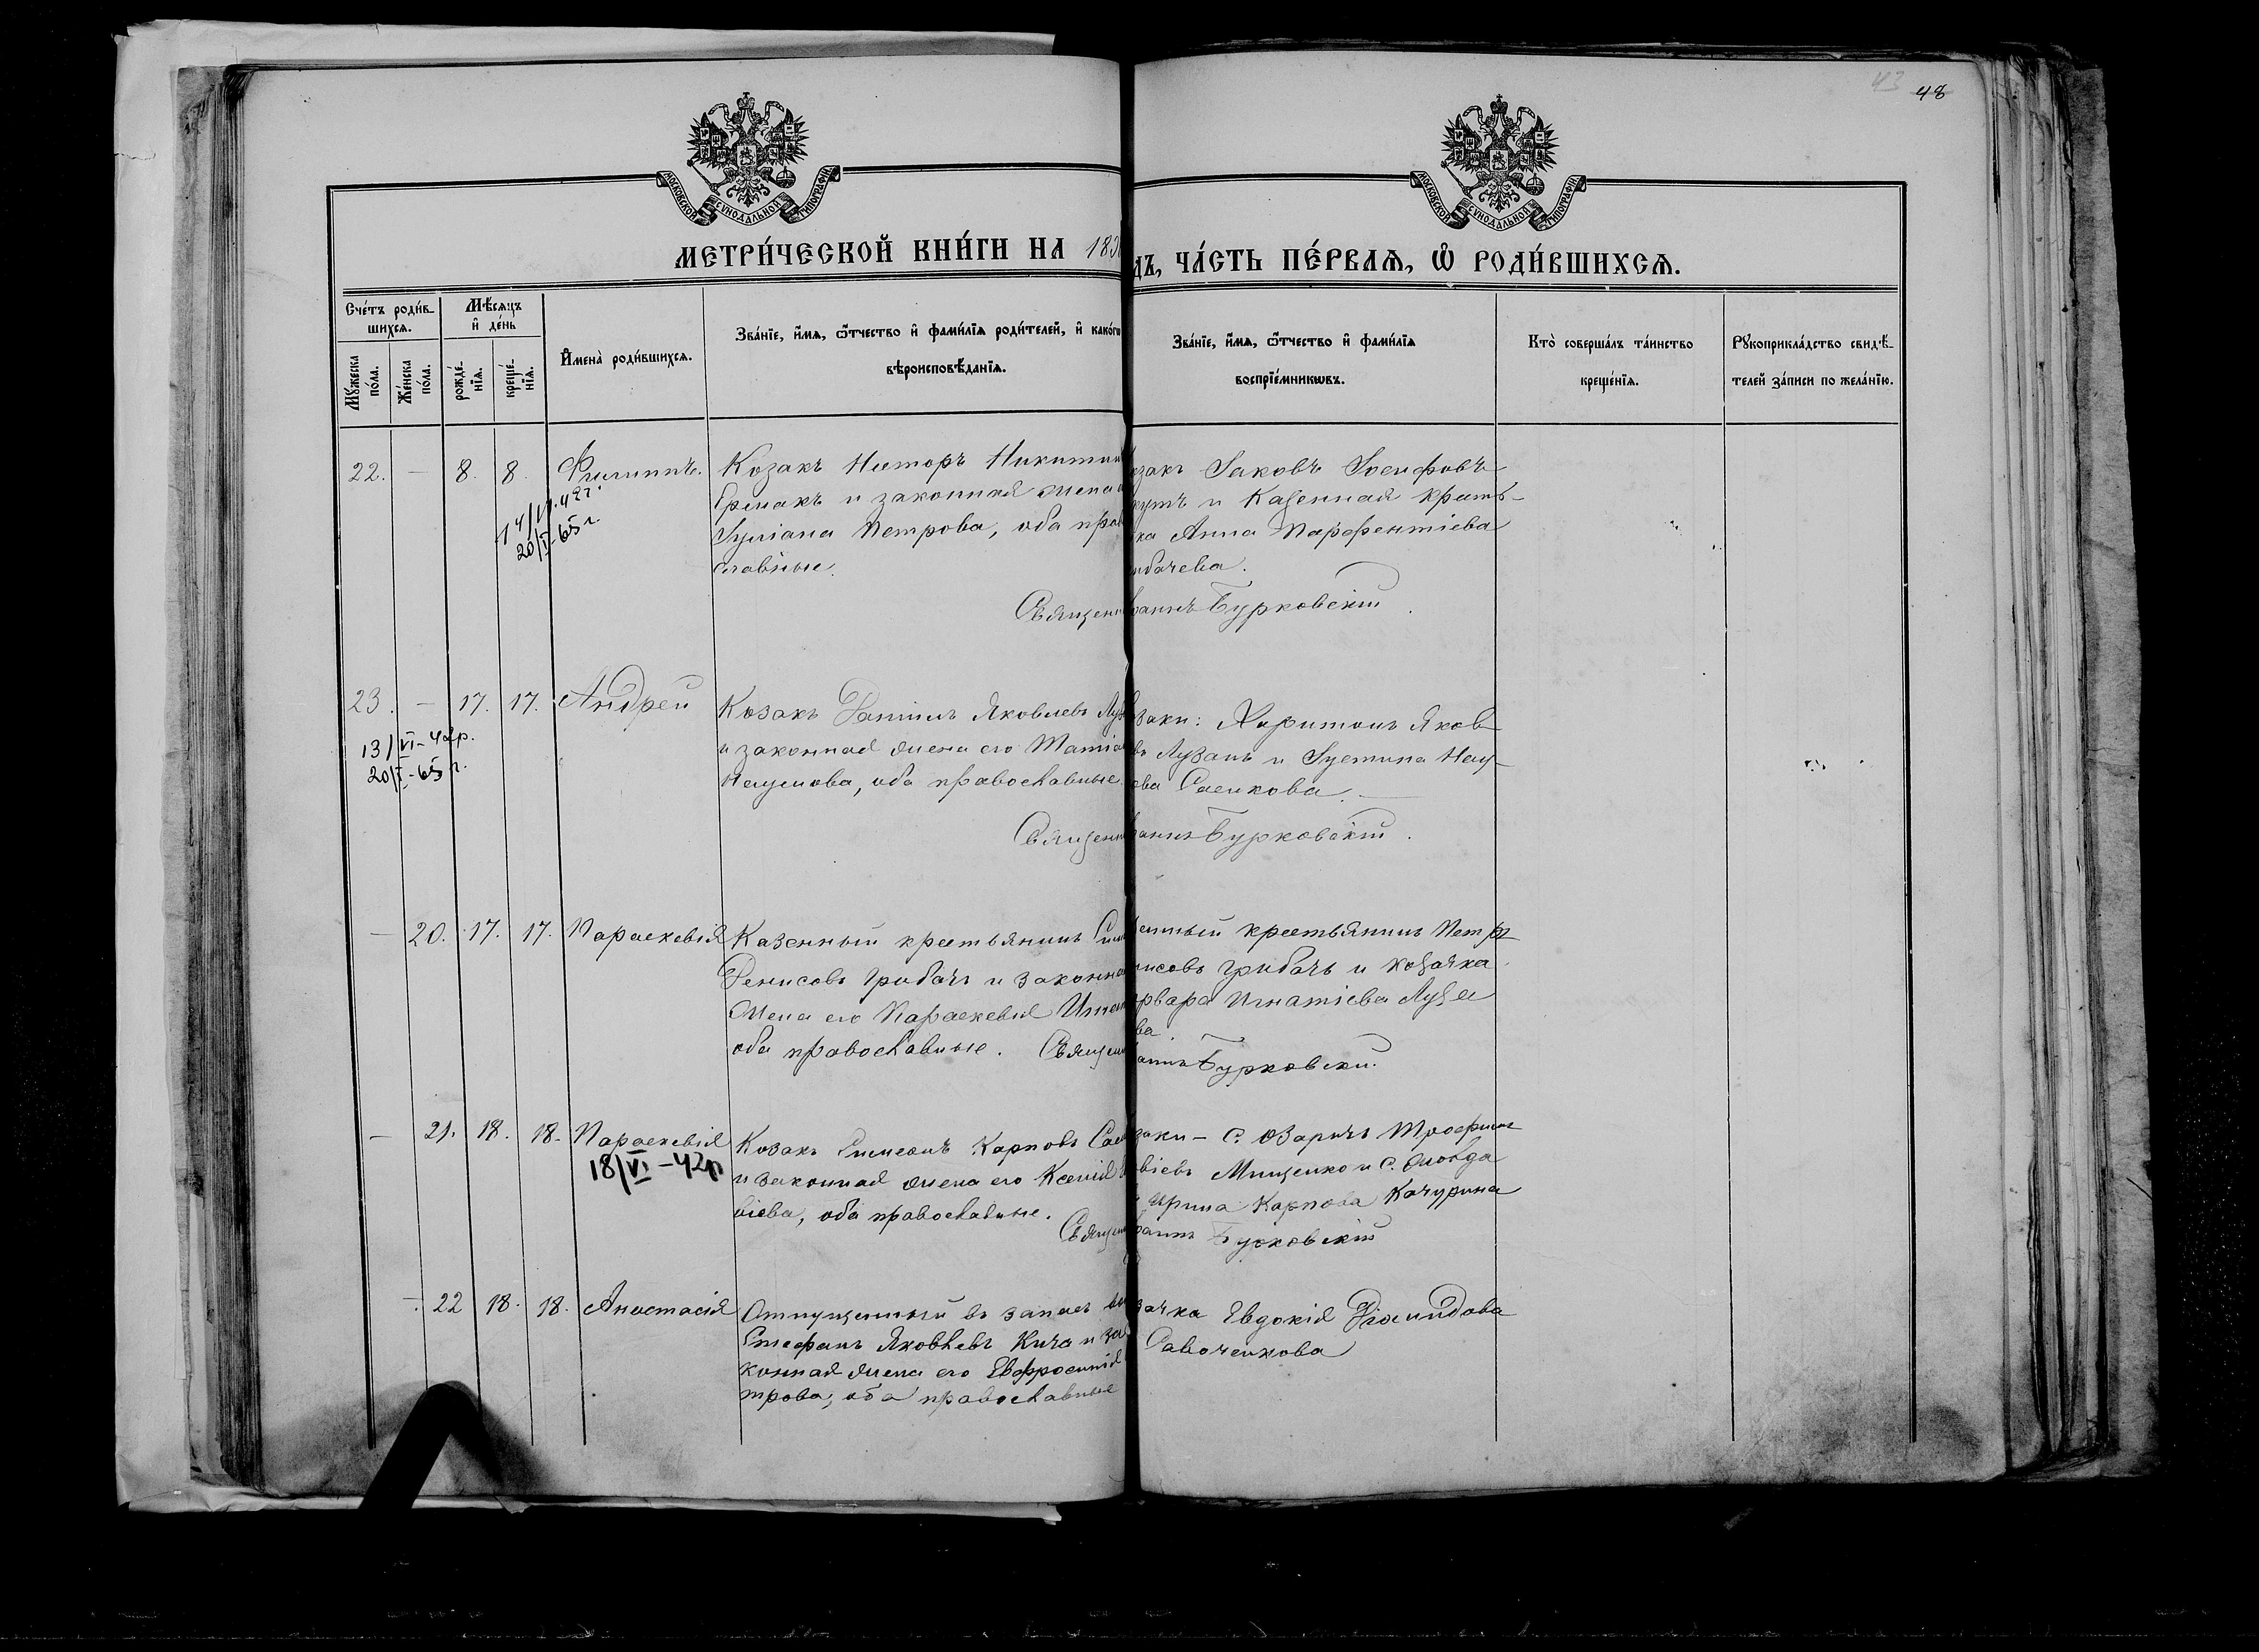 43 48
МОСКОВСКОЙ СУНОДАЛЬНОЙ ТИПОГРАФІИ
МОСКОВСКОЙ СУНОДАЛЬНОЙ ТИПОГРАФІИ
МЕТРИ́ЧЕСКОЙ КНИ́ГИ НА 189
ДЪ, ЧА́СТЬ ПЕ́РВАЯ, Ѡ҆ РОДИ́ВШИХСЯ.
Сче́тъ роди́в-
шихся.
Мꙋжеска по́ла.
Же́нска по́ла.
Мѣ́сяцъ
и҆ де́нь
рожде́-
нїя.
креще́-
нїя.
И҆мена̀ роди́вшихся.
Зва́нїе, и҆́мя, ѻ҆́тчество и҆ фами́лїя роди́телей, и҆ како́гѡ
вѣроисповѣ́данїя.
Зва́нїе, и҆́мя, ѻ҆́тчество и҆ фами́лїя
воспрїе́мникѡвъ.
Кто̀ соверша́лъ та́инство
креще́нїя.
Рꙋкоприкла́дство свидѣ́-
телей за́писи по жела́нїю.
22. — 8. 8. Филиппъ.
14/VI-42г.
20/I-65г.
Козакъ Никита
Ермакъ и законная жена
Іуліана Петрова, оба прав
славные.
Священн
озакъ Іаковъ Іосифовъ
и Казенная кресть-
ка Анна Парфентіева
ибачева.
оаннъ Бурковскій
23. — 17. 17. Андрей
13/VI-42г.
20/I-65г.
Козакъ Даніилъ Яковлевъ Луз
и законная жена его Татіа
Наумова, оба православные.
Священн
заки: Харитонъ Яков
въ Лузанъ и Іустина Нау-
ова Саенкова.
оаннъ Бурковскій
— 20. 17. 17. Параскевія
Казенный крестьянинъ Сим
Денисовъ Грибачъ и законна
жена его Параскевія Игна
оба православные. Священ
енный крестьянинъ Петръ
нисовъ Грибачъ и козачка
рвара Игнатіева Луза
ва.
оаннъ Бурковскій.
— 21. 18. 18. Параскевія
18/VI-42г
Козакъ Симеонъ Карповъ Сае
и законная жена его Ксенія
віева, оба православные.
Священ
заки — с. Озаричъ Трофим
віевъ Мищенко и с.
Ирина Карпова Качурина
оаннъ Бурковскій
— 22 18. 18. Анастасія
Отпущенный въ запасъ
Стефанъ Яковлевъ Кича и за
конная жена его Евфросинія
трова, оба православные
зачка Евдокія Діамидова
Савоченкова